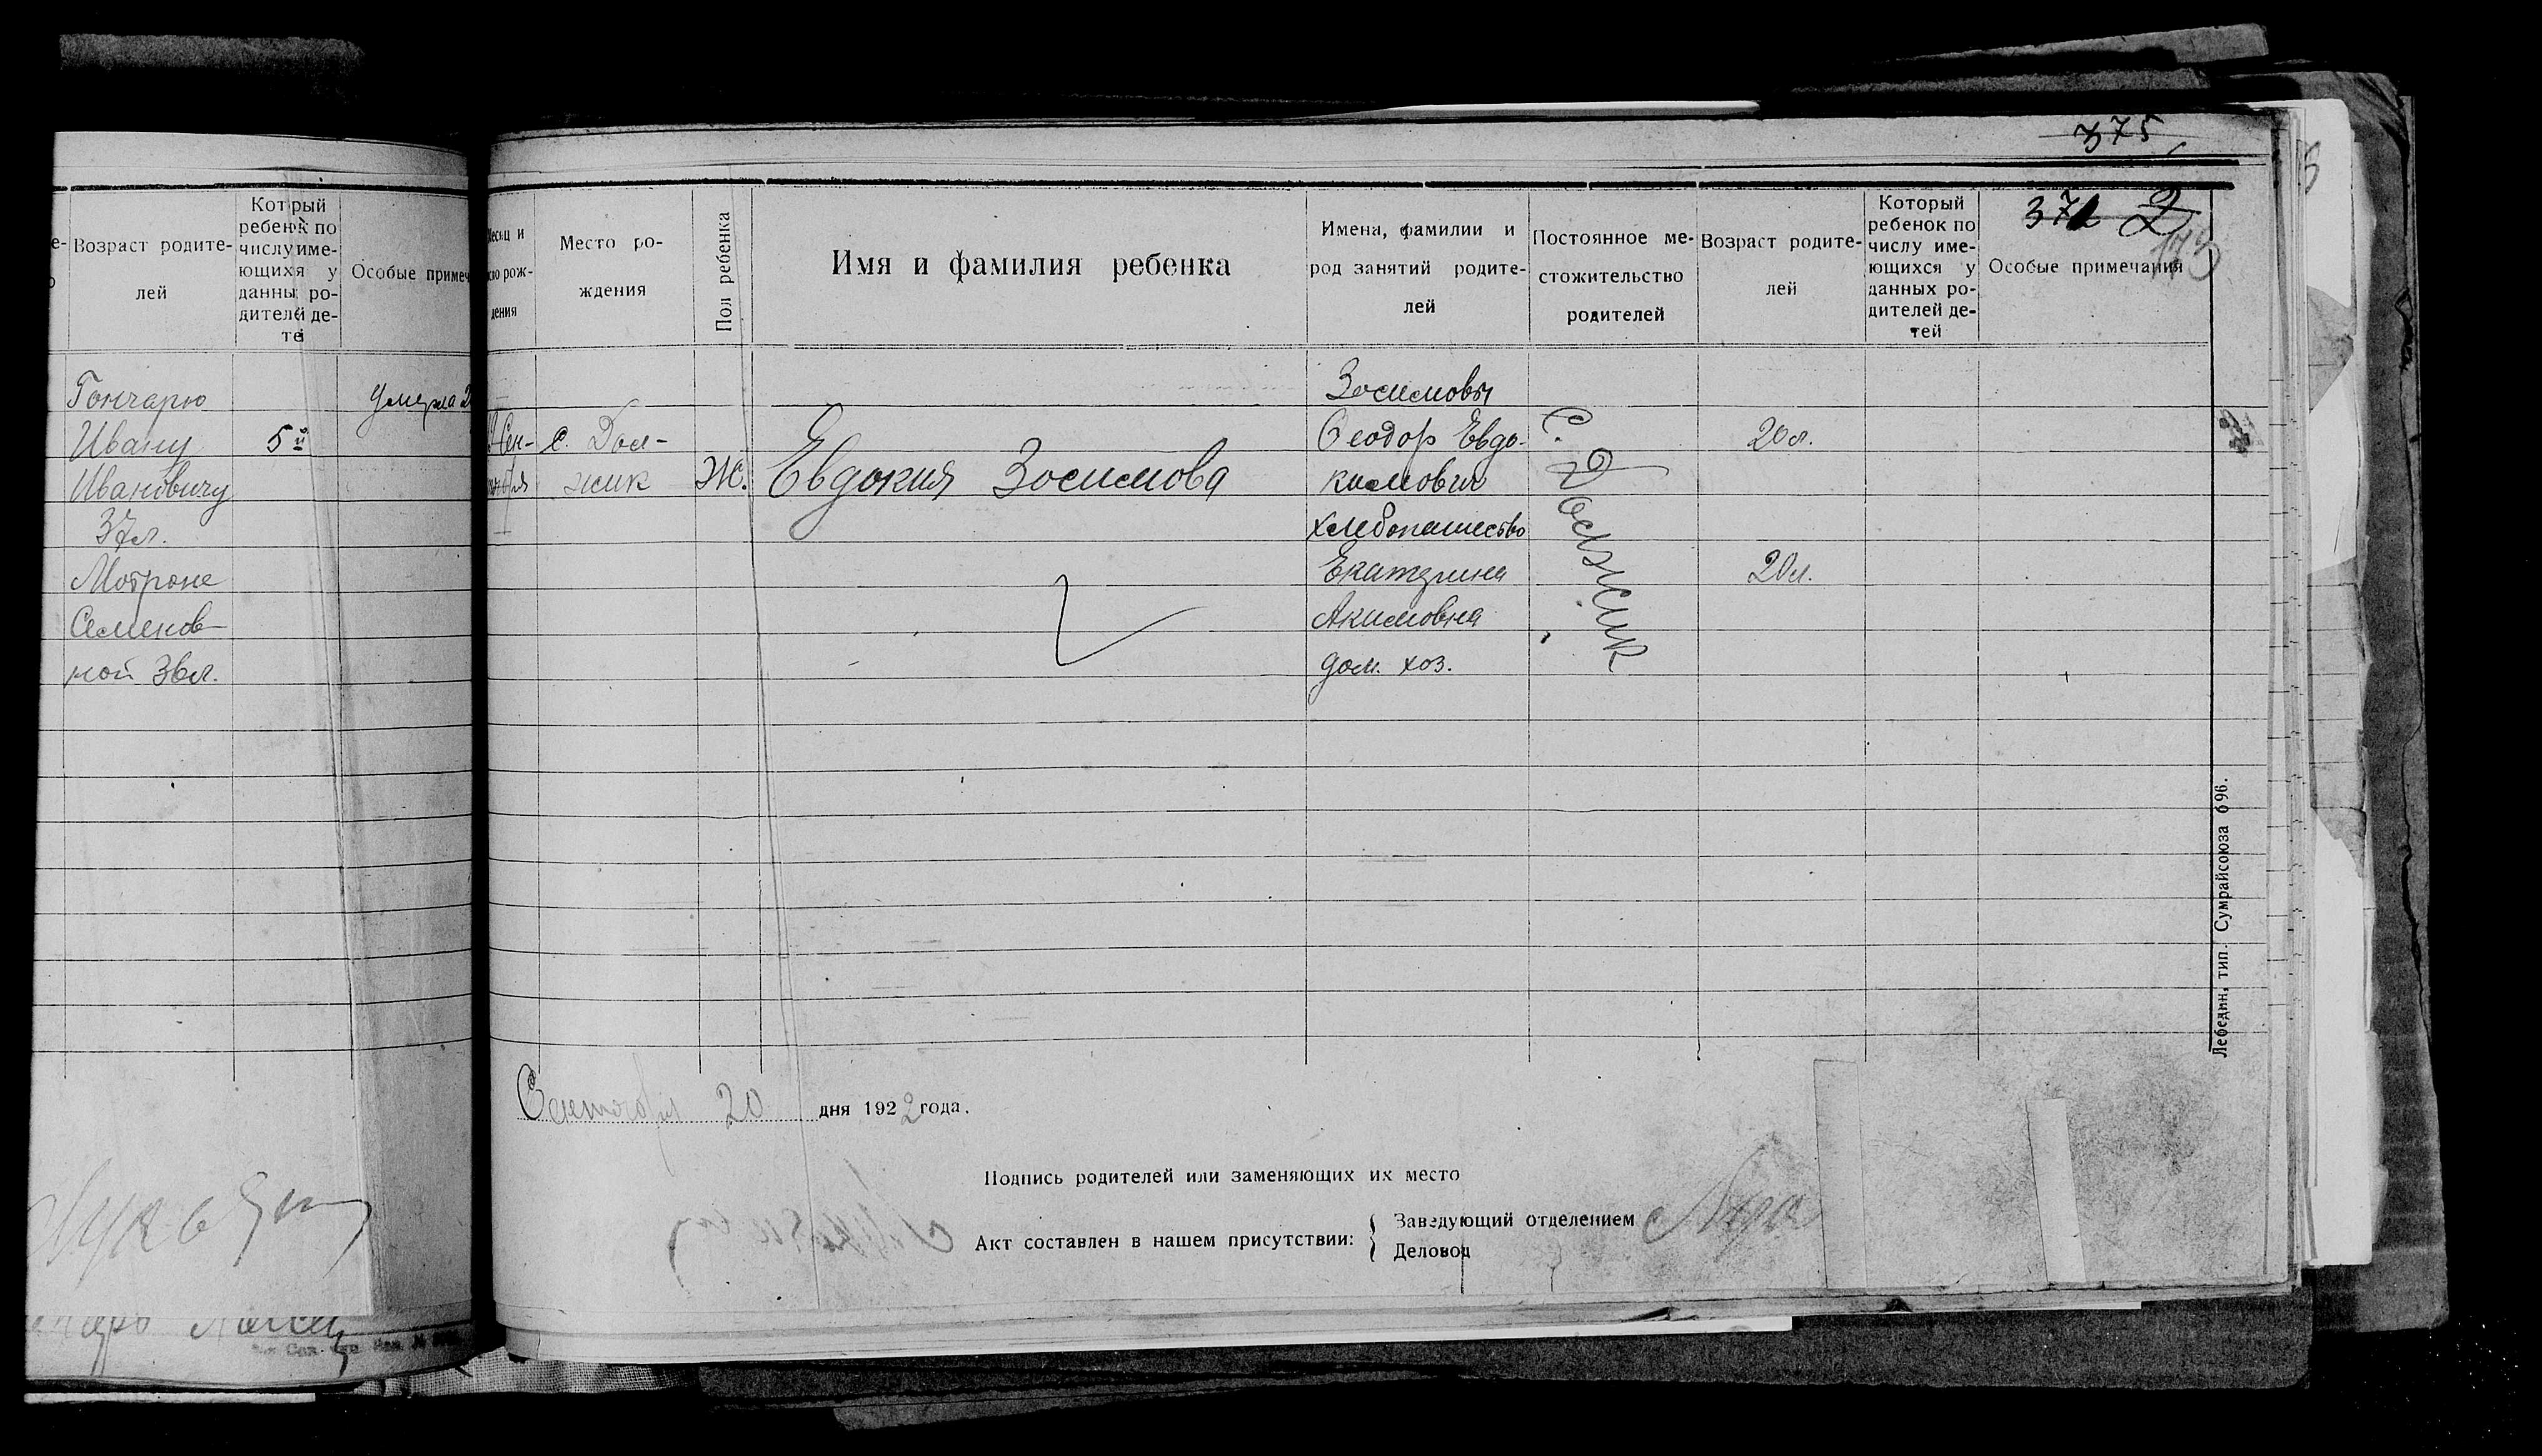 е-
о
Возраст родите-
лей
Который
ребенк по
числу име-
ющихя у
данны ро-
дителй де-
те
Особые примеч
Гончарю
Ивану
Ивановичу
37л.
Мотроне
Семенов-
ной 36л.
5й
умерла
375
371 2
173
Месяц и
рож-
дения
Место ро-
ждения
Пол ребенка
Имя и фамилия ребенка
Имена, фамилии и
род занятий родите-
лей
Постоянное ме-
стожительство
родителей
Возраст родите-
лей
Который
ребенок по
числу име-
ющихся у
данных ро-
дителей де-
тей
Особые примечания
Сен-
тября
с. Дол-
жик
Ж.
Евдокия Зосимова
Зосимовы
Феодор Евдо-
кимович
хлебопашество
Екатерина
Акимовна
дом. хоз.
С. Должик
20л.
20л.
Сентября 20 дня 1922 года.
Подпись родителей или заменяющих их место
Акт составлен в нашем присутствии:
Заведующий отделением
Деловод
Лебедин, тип. Сумрайсоюза 696.